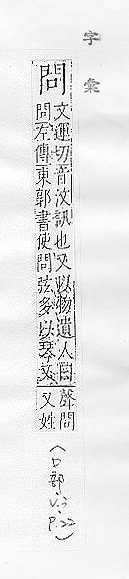 字彙
問
文運切音汶訊也又以物遺人曰
問左傳東郭書使問弦多以琴又
聲問
又姓
(口部, V. P.22)